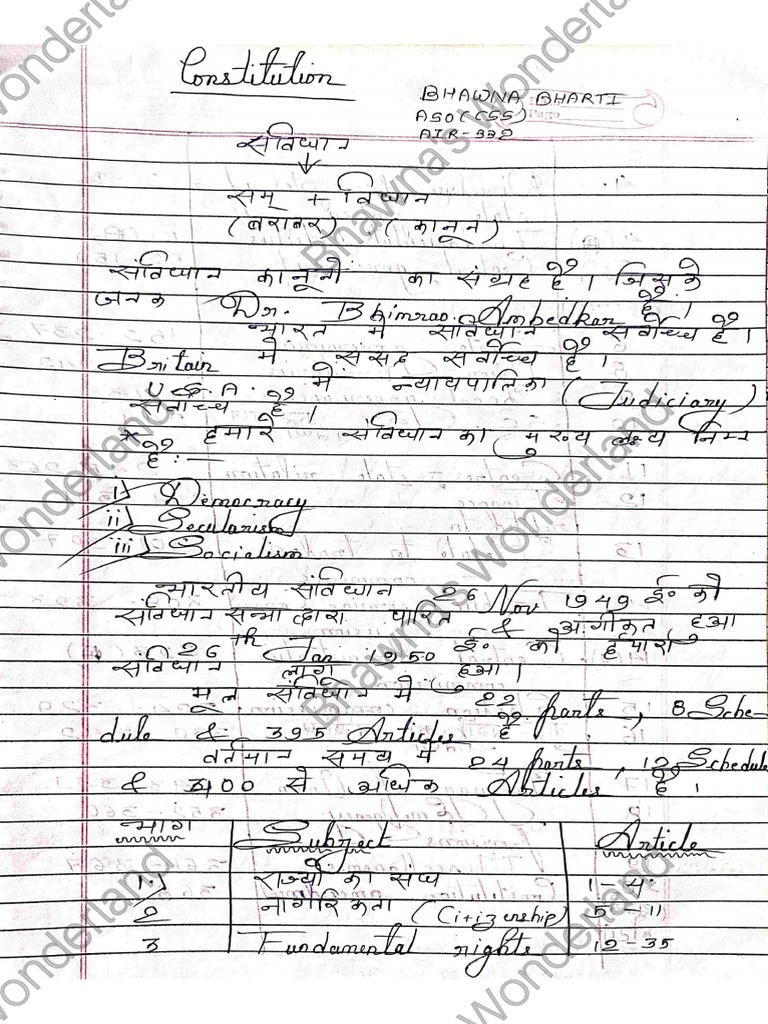 Constitution
BHAWNA BHARTI
ASO (CSS)
AIR-332
संविधान
सम् + विधान
(बराबर) (कानून)
संविधान कानूनों का संग्रह है। जिसके
जनक Dr. Bhimrao Ambedkar है।
भारत में संविधान सर्वोच्च है।
Britain में संसद सर्वोच्च है।
U.S.A. में न्यायपालिका (Judiciary)
सर्वोच्च है।
* हमारे संविधान का मुख्य लक्ष्य निम्न
है :—
i) Democracy
ii) Secularism
iii) Socialism
भारतीय संविधान 26 Nov 1949 ई० को
संविधान सभा द्वारा पारित & अंगीकृत हुआ
26th Jan 1950 ई० को हमारा
संविधान लागू हुआ।
मूल संविधान में 22 parts, 8 Sche-
dule & 395 Articles है
वर्तमान समय में 24 parts, 12 Schedule
& 400 से अधिक Articles है।
भाग Subject Article
1.) राज्यों का संघ 1-4
2 नागरिकता (Citizenship) 5-11
3 Fundamental rights 12-35
Bhawna's Wonderland